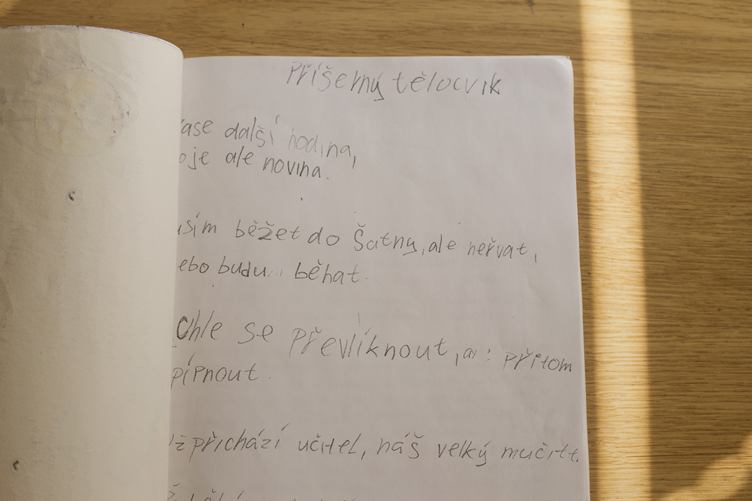 Příšerný tělocvik
další hodina,
je ale novina.
běžet do Šatny, ale neřvat,
budu běhat.
se převlíknout, a přitom
pípnout.
přichází učitel, náš velký mučite